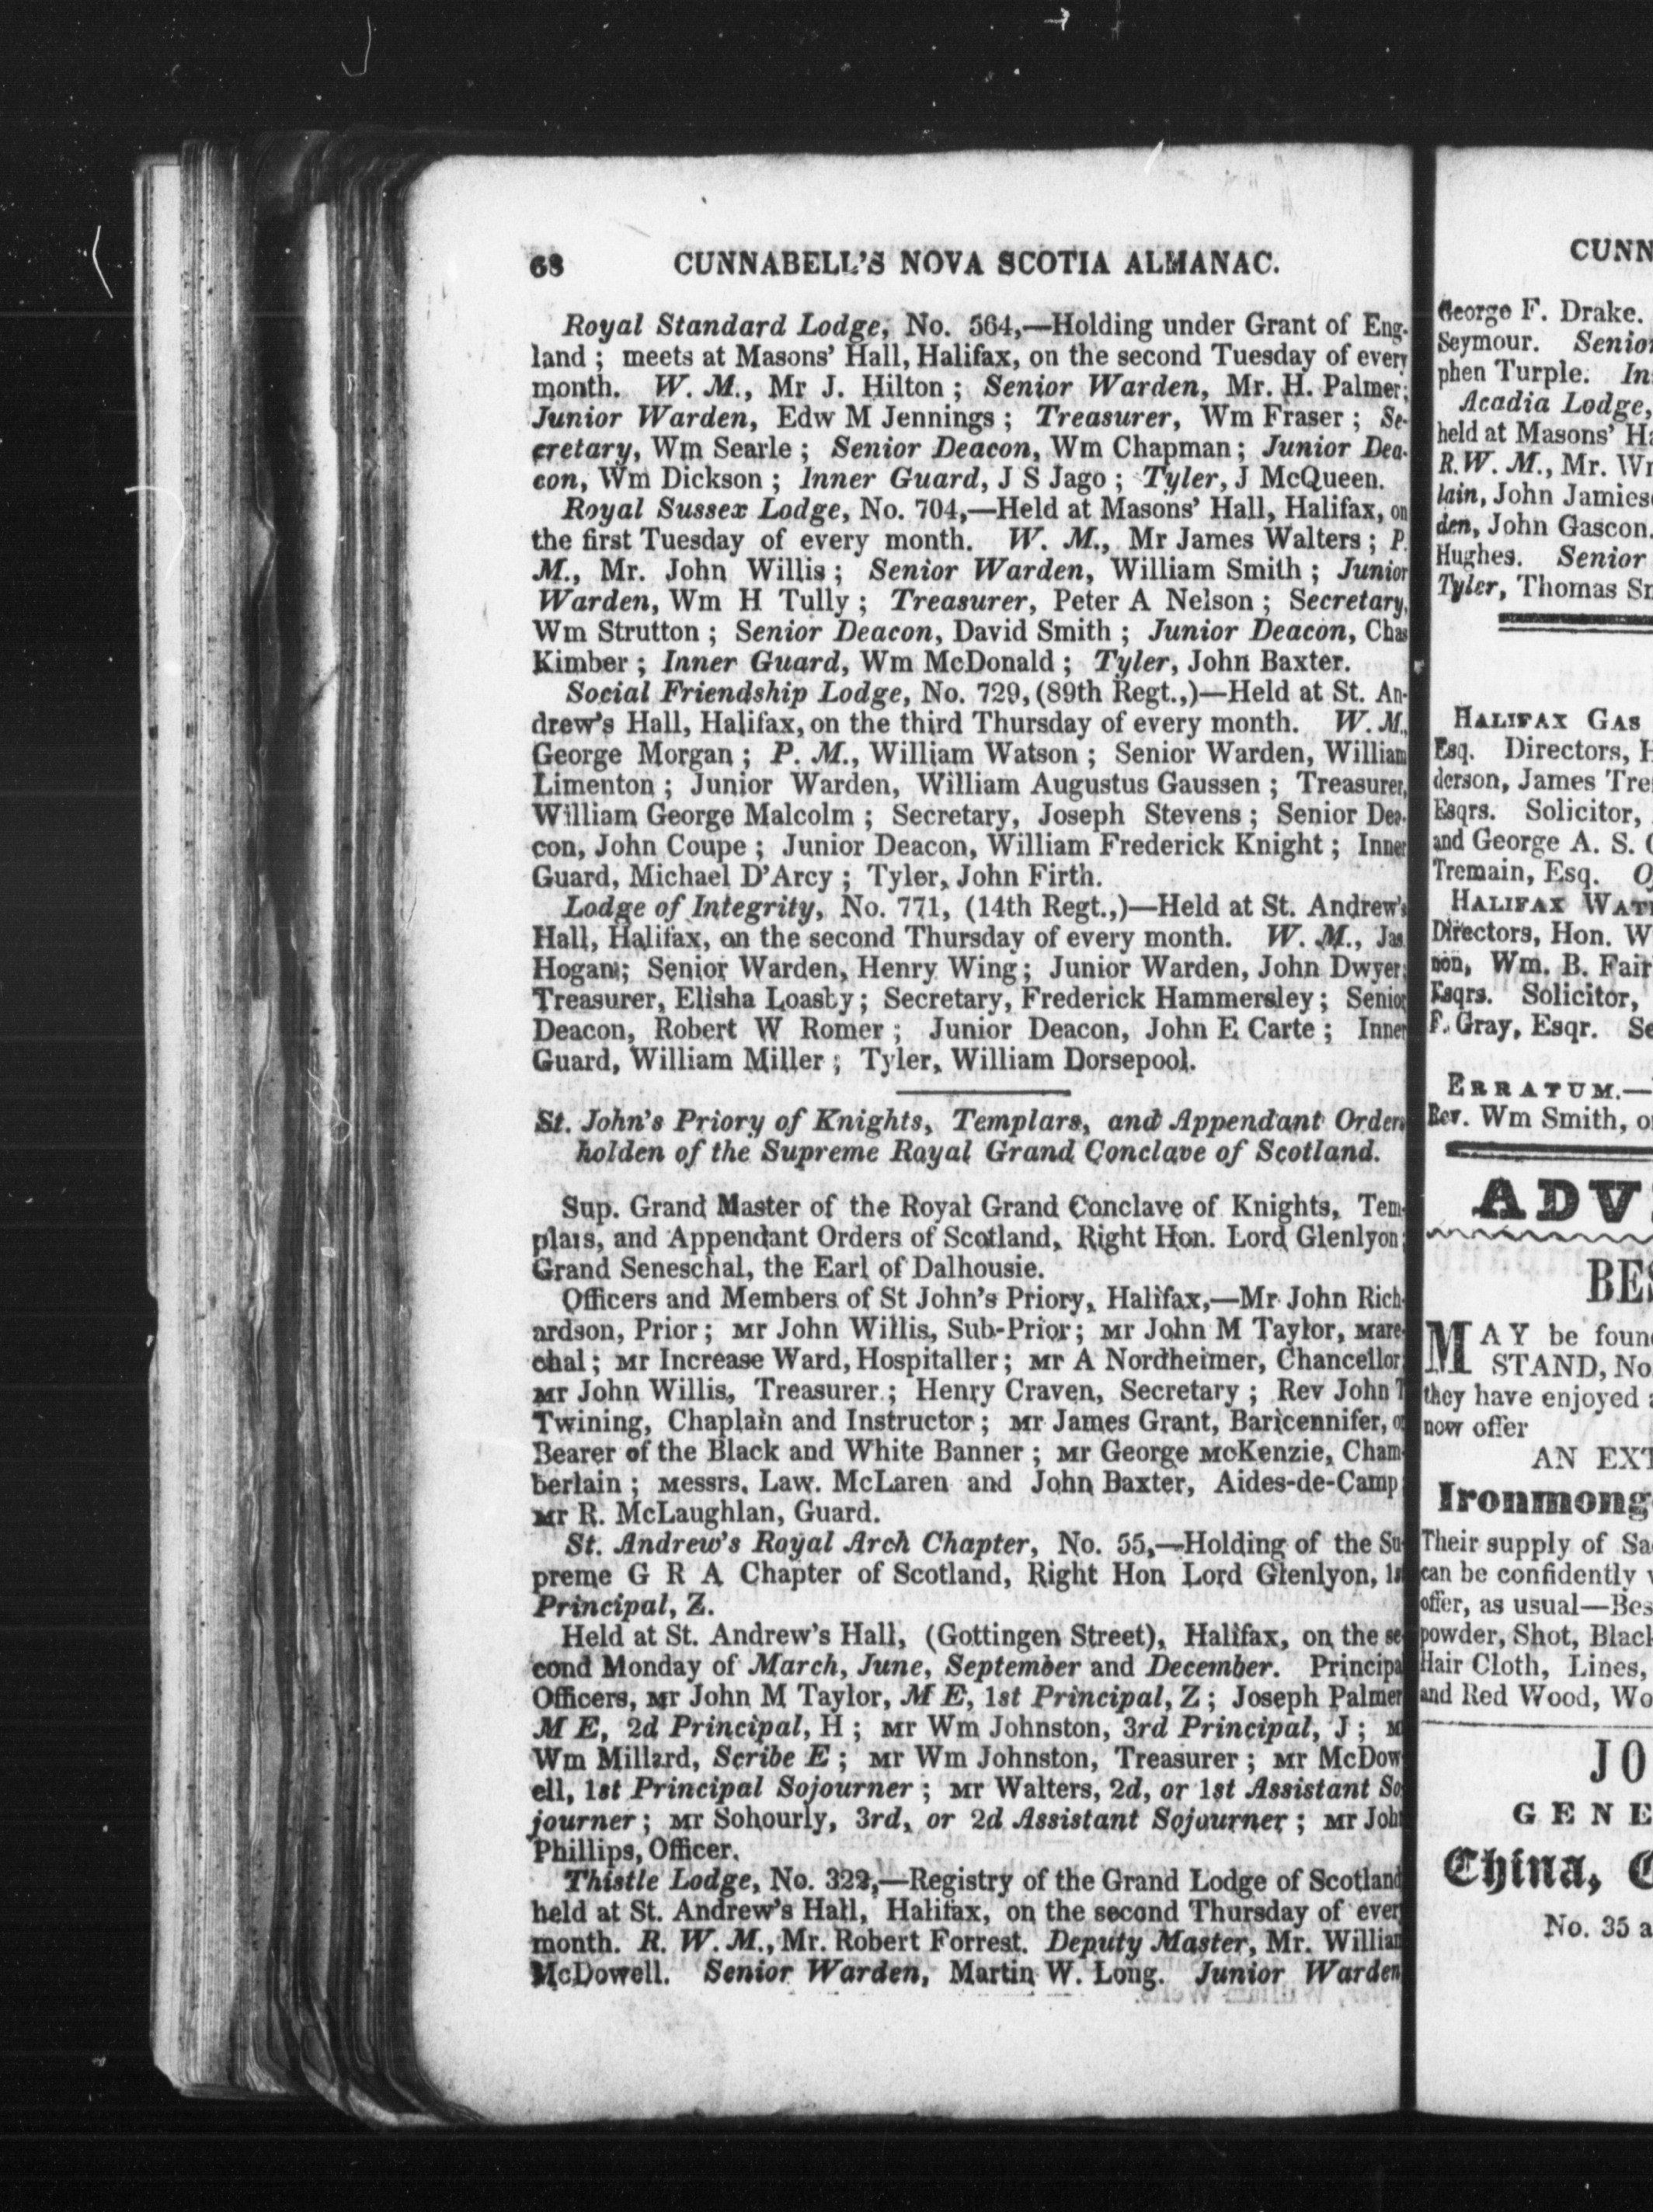 68 CUNNABELL'S NOVA SCOTIA ALMANAC.
Royal Standard Lodge, No. 564,—Holding under Grant of Eng-
land ; meets at Masons' Hall, Halifax, on the second Tuesday of every
month. W. M., Mr J. Hilton ; Senior Warden, Mr. H. Palmer;
Junior Warden, Edw M Jennings ; Treasurer, Wm Fraser ; Se-
cretary, Wm Searle ; Senior Deacon, Wm Chapman ; Junior Dea-
con, Wm Dickson ; Inner Guard, J S Jago ; Tyler, J McQueen.
Royal Sussex Lodge, No. 704,—Held at Masons' Hall, Halifax, on
the first Tuesday of every month. W. M., Mr James Walters ; P.
M., Mr. John Willis ; Senior Warden, William Smith ; Junior
Warden, Wm H Tully ; Treasurer, Peter A Nelson ; Secretary,
Wm Strutton ; Senior Deacon, David Smith ; Junior Deacon, Chas
Kimber ; Inner Guard, Wm McDonald ; Tyler, John Baxter.
Social Friendship Lodge, No. 729, (89th Regt.,)—Held at St. An-
drew's Hall, Halifax, on the third Thursday of every month. W. M.,
George Morgan ; P. M., William Watson ; Senior Warden, William
Limenton ; Junior Warden, William Augustus Gaussen ; Treasurer,
William George Malcolm ; Secretary, Joseph Stevens ; Senior Dea-
con, John Coupe ; Junior Deacon, William Frederick Knight ; Inner
Guard, Michael D'Arcy ; Tyler, John Firth.
Lodge of Integrity, No. 771, (14th Regt.,)—Held at St. Andrew's
Hall, Halifax, on the second Thursday of every month. W. M., Jas
Hogan; Senior Warden, Henry Wing; Junior Warden, John Dwyer;
Treasurer, Elisha Loasby; Secretary, Frederick Hammersley; Senior
Deacon, Robert W Romer ; Junior Deacon, John E Carte ; Inner
Guard, William Miller ; Tyler, William Dorsepool.
St. John's Priory of Knights, Templars, and Appendant Orders
holden of the Supreme Royal Grand Conclave of Scotland.
Sup. Grand Master of the Royal Grand Conclave of Knights, Tem-
plars, and Appendant Orders of Scotland, Right Hon. Lord Glenlyon;
Grand Seneschal, the Earl of Dalhousie.
Officers and Members of St John's Priory, Halifax,—Mr John Rich-
ardson, Prior ; Mr John Willis, Sub-Prior ; Mr John M Taylor, Mare-
chal ; Mr Increase Ward, Hospitaller ; Mr A Nordheimer, Chancellor;
Mr John Willis, Treasurer ; Henry Craven, Secretary ; Rev John T
Twining, Chaplain and Instructor ; Mr James Grant, Baricennifer, or
Bearer of the Black and White Banner ; Mr George McKenzie, Cham-
berlain ; Messrs. Law. McLaren and John Baxter, Aides-de-Camp
Mr R. McLaughlan, Guard.
St. Andrew's Royal Arch Chapter, No. 55,—Holding of the Su-
preme G R A Chapter of Scotland, Right Hon Lord Glenlyon, 1st
Principal, Z.
Held at St. Andrew's Hall, (Gottingen Street), Halifax, on the se-
cond Monday of March, June, September and December. Principal
Officers, Mr John M Taylor, M E, 1st Principal, Z ; Joseph Palmer
M E, 2d Principal, H ; Mr Wm Johnston, 3rd Principal, J ; M
Wm Millard, Scribe E ; Mr Wm Johnston, Treasurer ; Mr McDow
ell, 1st Principal Sojourner ; Mr Walters, 2d, or 1st Assistant So
journer ; Mr Sohourly, 3rd, or 2d Assistant Sojourner ; Mr John
Phillips, Officer.
Thistle Lodge, No. 322,—Registry of the Grand Lodge of Scotland
held at St. Andrew's Hall, Halifax, on the second Thursday of every
month. R. W. M., Mr. Robert Forrest. Deputy Master, Mr. William
McDowell. Senior Warden, Martin W. Long. Junior Warden
CUNN
George F. Drake.
Seymour. Senior
phen Turple. In
Acadia Lodge,
held at Masons' Ha
R. W. M., Mr. Wm
lain, John Jamies
den, John Gascon.
Hughes. Senior
Tyler, Thomas Sm
HALIFAX GAS
Esq. Directors, H
derson, James Tre
Esqrs. Solicitor,
and George A. S. C
Tremain, Esq. O
HALIFAX WAT
Directors, Hon. W
non, Wm. B. Fair
Esqrs. Solicitor,
F. Gray, Esqr. Se
ERRATUM.—
Rev. Wm Smith, o
ADV
BES
MAY be foun
STAND, No
they have enjoyed a
now offer
AN EXT
Ironmong
Their supply of Sa
can be confidently
offer, as usual—Bes
powder, Shot, Black
Hair Cloth, Lines,
and Red Wood, Wo
JO
GENE
China, G
No. 35 a